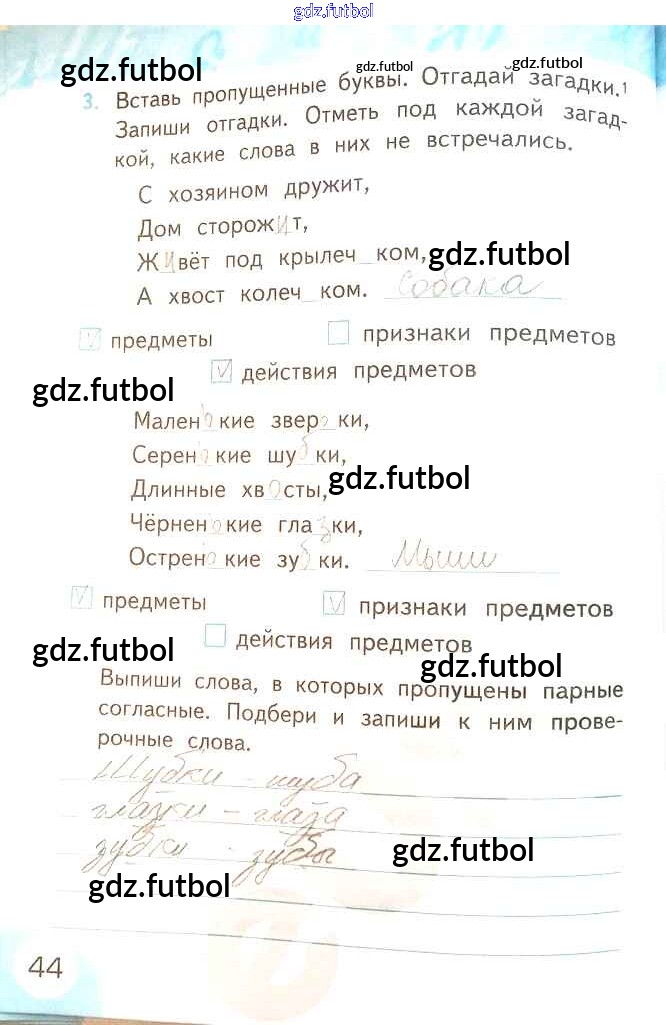 gdz.futbol
gdz.futbol gdz.futbol gdz.futbol
3. Вставь пропущенные буквы. Отгадай загадки.1
Запиши отгадки. Отметь под каждой загад-
кой, какие слова в них не встречались.
С хозяином дружит,
Дом сторожит,
Живёт под крылеч_ком, gdz.futbol
А хвост колеч_ком. Собака
предметы признаки предметов
действия предметов
gdz.futbol
Маленькие зверьки,
Серенькие шубки,
Длинные хвосты, gdz.futbol
Чёрненькие глазки,
Остренькие зубки. Мыши
предметы признаки предметов
действия предметов
gdz.futbol gdz.futbol
Выпиши слова, в которых пропущены парные
согласные. Подбери и запиши к ним прове-
рочные слова.
Шубки - шуба
глазки - глаза
зубки - зубы gdz.futbol
gdz.futbol
44